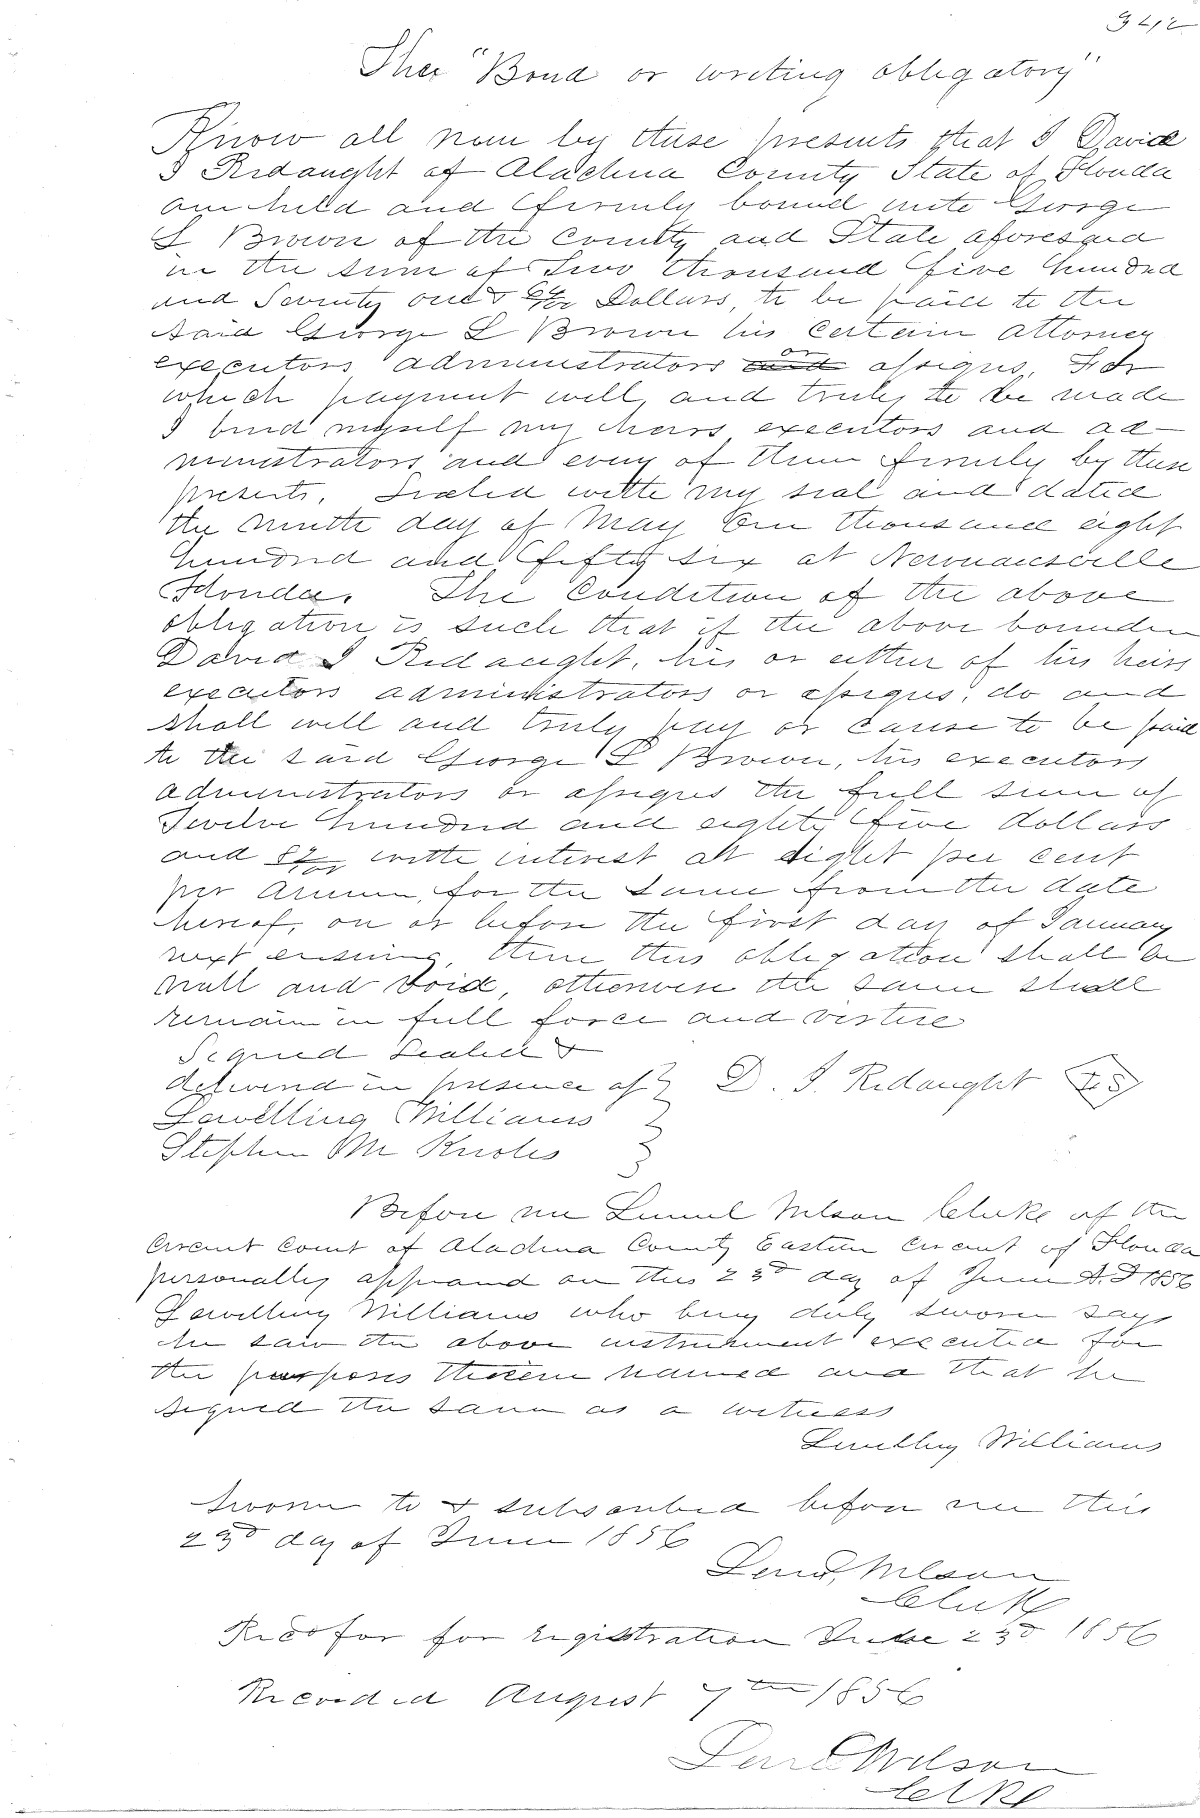 342
The "Bond or writing obligatory"
Know all men by these presents that I David
I Redaught of Alachua County State of Florida
am held and firmly bound unto George
L Brown of the County and State aforesaid
in the sum of Two thousand five hundred
and Seventy one & Dollars, to be paid to the
said George L Brown his certain attorney
executors administrators or assigns. For
which payment well and truly to be made
I bind myself my heirs executors and ad-
ministrators and every of them firmly by these
presents. Sealed with my seal and dated
the ninth day of May One thousand eight
hundred and fifty six at Newnansville
Florida. The Condition of the above
obligation is such that if the above bounden
David I Redaught, his or either of his heirs
executors administrators or assigns, do and
shall well and truly pay or cause to be paid
to the said George L Brown, his executors
administrators or assigns the full sum of
Twelve hundred and eighty five dollars
and with interest at eight per cent
per annum, for the same from the date
hereof, on or before the first day of January
next ensuing, then this obligation shall be
null and void, otherwise the same shall
remain in full force and virtue
Signed Sealed &
delivered in presence of D. I. Redaught LS
Lewelling Williams
Stephen M Knoles
Before me Lemuel Wilson Clerke of the
Circuit Court of Alachua County Eastern Circuit of Florida
personally appeared on this 23rd day of June A.D 1856
Lewelling Williams who being duly sworn says
he saw the above instrument executed for
the purposes therein named and that he
signed the same as a witness
Lewelling Williams
Sworn to & subscribed before me this
23rd day of June 1856
Leml. Wilson
Clerk
Recd for for registration June 23rd 1856
Recorded August 7th 1856
Leml Wilson
Clke